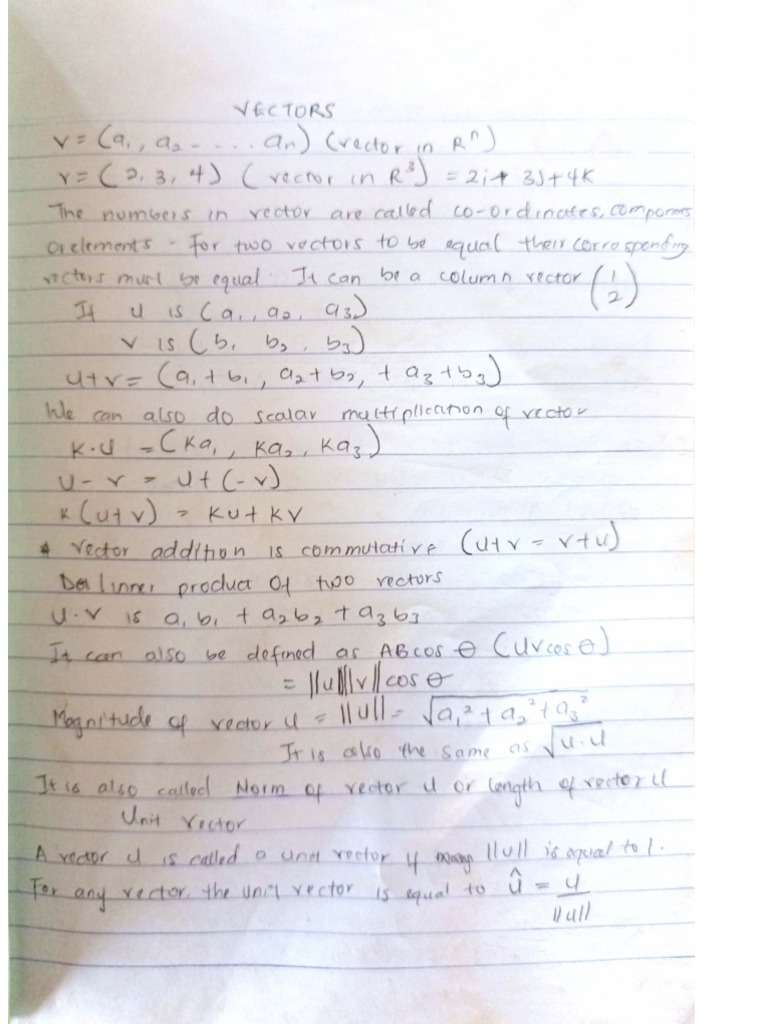 VECTORS
v = (a₁, a₂ - . . . . aₙ) (vector in Rⁿ)
v = (2, 3, 4) (vector in R³) = 2i + 3J + 4K
The numbers in vector are called co-ordinates, components
or elements - For two vectors to be equal their corresponding
vectors must be equal. It can be a column vector (1 2)
If u is (a₁, a₂, a₃)
v is (b₁ b₂, b₃)
u+v = (a₁ + b₁, a₂ + b₂, + a₃ + b₃)
We can also do scalar multiplication of vector
K.U = (Ka₁, Ka₂, Ka₃)
U - v = U + (-v)
K(u+v) = KU + KV
* Vector addition is commutative (U+v = v+u)
inner product Of two vectors
U.V is a₁b₁ + a₂b₂ + a₃b₃
It can also be defined as ABcos θ (UVcos θ)
= ||u||||v|| cos θ
Magnitude of vector u = ||u|| = √a₁² + a₂² + a₃²
It is also the same as √u.u
It is also called Norm of vector u or length of vector u
Unit Vector
A vector u is called a unit vector if ||u|| is equal to 1.
For any vector, the unit vector is equal to û = u
||u||